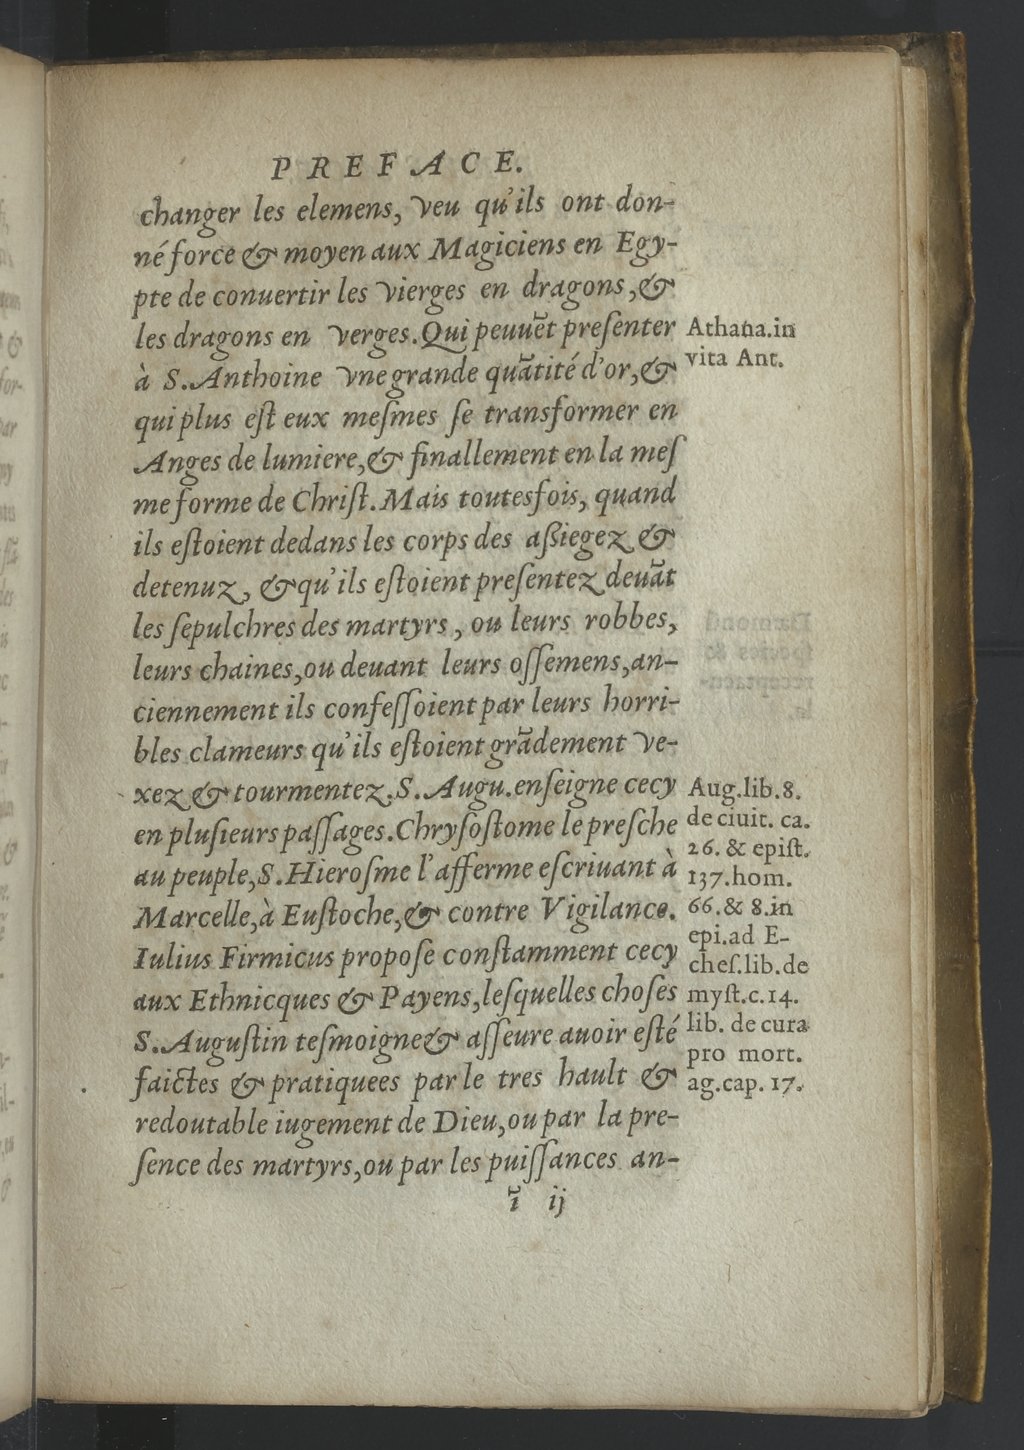 PREFACE.
changer les elemens, veu qu'ils ont don-
né force & moyen aux Magiciens en Egy-
pte de conuertir les vierges en dragons, &
les dragons en verges. Qui peuuẽt preſenter
à S. Anthoine vne grande quãtité d'or, &
qui plus eſt eux meſmes ſe transformer en
Anges de lumiere, & finallement en la meſ
me forme de Chriſt. Mais toutesfois, quand
ils eſtoient dedans les corps des aßiegez &
detenuz, & qu'ils eſtoient preſentez deuãt
les ſepulchres des martyrs, ou leurs robbes,
leurs chaines, ou deuant leurs oſſemens, an-
ciennement ils confeſſoient par leurs horri-
bles clameurs qu'ils eſtoient grãdement ve-
xez & tourmentez. S. Augu. enſeigne cecy
en pluſieurs paſſages. Chryſoſtome le preſche
au peuple, S. Hieroſme l'afferme eſcriuant à
Marcelle, à Euſtoche, & contre Vigilance.
Iulius Firmicus propoſe conſtamment cecy
aux Ethnicques & Payens, leſquelles choſes
S. Auguſtin teſmoigne & aſſeure auoir eſté
faictes & pratiquees par le tres hault &
redoutable iugement de Dieu, ou par la pre-
ſence des martyrs, ou par les puiſſances an-
ĩ ij
Athana.in
vita Ant.
Aug.lib.8.
de ciuit. ca.
26. & epiſt.
137.hom.
66.& 8.in
epi.ad E-
cheſ.lib.de
myſt.c.14.
lib. de cura
pro mort.
ag.cap. 17.